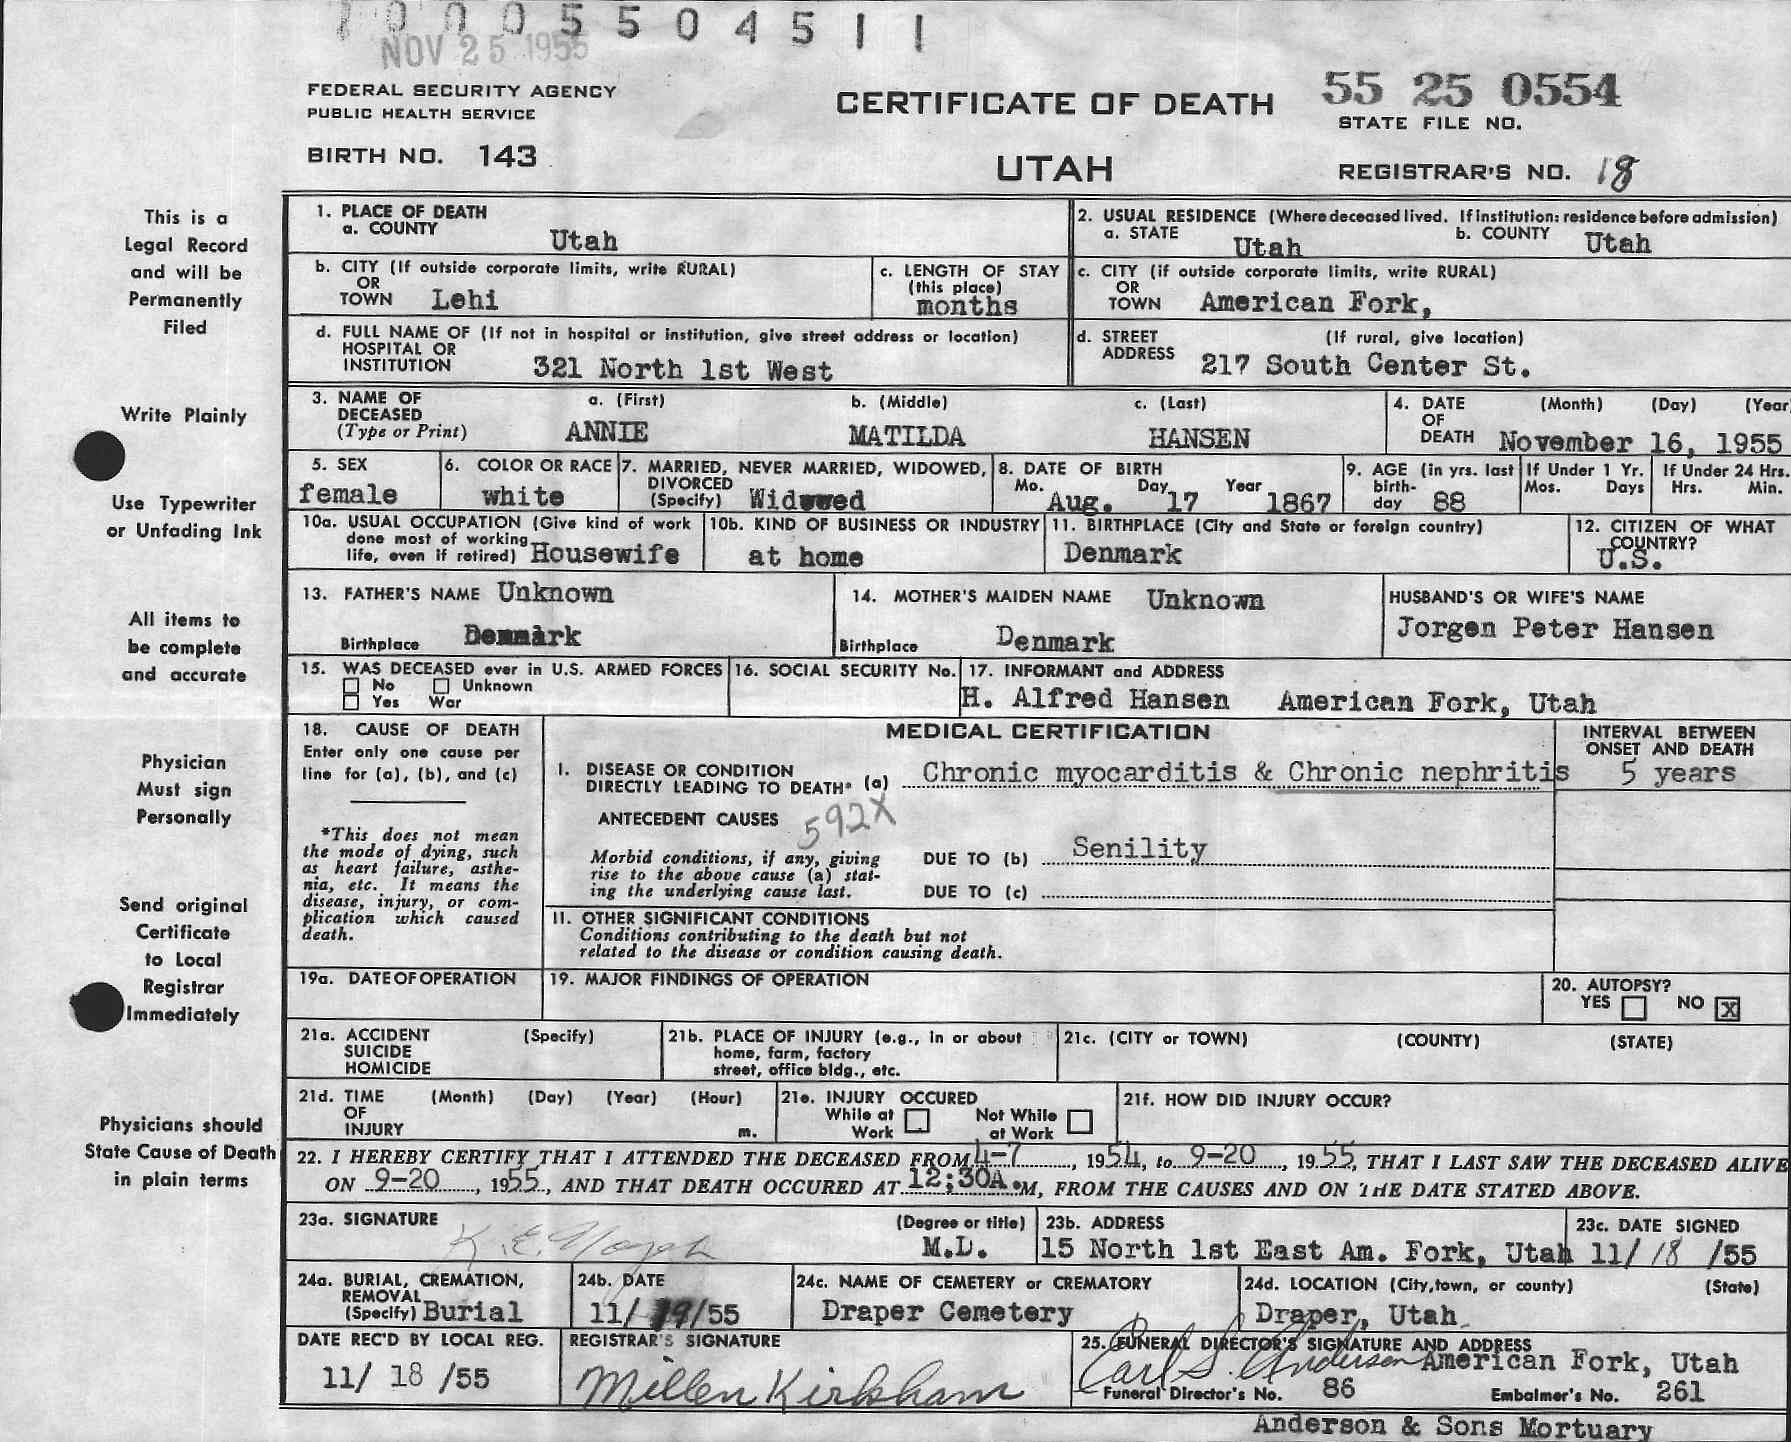 70005504511
NOV 25 1955
FEDERAL SECURITY AGENCY
PUBLIC HEALTH SERVICE
BIRTH NO. 143
CERTIFICATE OF DEATH
UTAH
55 25 0554
STATE FILE NO.
REGISTRAR'S NO. 18
This is a
Legal Record
and will be
Permanently
Filed
Write Plainly
Use Typewriter
or Unfading Ink
All items to
be complete
and accurate
Physician
Must sign
Personally
Send original
Certificate
to Local
Registrar
Immediately
Physicians should
State Cause of Death
in plain terms
1. PLACE OF DEATH
a. COUNTY Utah
2. USUAL RESIDENCE (Where deceased lived. If institution: residence before admission)
a. STATE Utah b. COUNTY Utah
b. CITY (If outside corporate limits, write RURAL)
OR
TOWN Lehi
c. LENGTH OF STAY
(this place)
months
c. CITY (if outside corporate limits, write RURAL)
OR
TOWN American Fork,
d. FULL NAME OF (If not in hospital or institution, give street address or location)
HOSPITAL OR
INSTITUTION 321 North 1st West
d. STREET (If rural, give location)
ADDRESS 217 South Center St.
3. NAME OF a. (First) b. (Middle) c. (Last)
DECEASED
(Type or Print) ANNIE MATILDA HANSEN
4. DATE (Month) (Day) (Year
OF
DEATH November 16, 1955
5. SEX
female
6. COLOR OR RACE
white
7. MARRIED, NEVER MARRIED, WIDOWED,
DIVORCED
(Specify) Widowed
8. DATE OF BIRTH
Mo. Day Year
Aug. 17 1867
9. AGE (in yrs. last
birth-
day 88
If Under 1 Yr.
Mos. Days
If Under 24 Hrs.
Hrs. Min.
10a. USUAL OCCUPATION (Give kind of work
done most of working
life, even if retired) Housewife
10b. KIND OF BUSINESS OR INDUSTRY
at home
11. BIRTHPLACE (City and State or foreign country)
Denmark
12. CITIZEN OF WHAT
COUNTRY?
U.S.
13. FATHER'S NAME Unknown
Birthplace Denmark
14. MOTHER'S MAIDEN NAME Unknown
Birthplace Denmark
HUSBAND'S OR WIFE'S NAME
Jorgen Peter Hansen
15. WAS DECEASED ever in U.S. ARMED FORCES
No Unknown
Yes War
16. SOCIAL SECURITY No.
17. INFORMANT and ADDRESS
H. Alfred Hansen American Fork, Utah
18. CAUSE OF DEATH
Enter only one cause per
line for (a), (b), and (c)
*This does not mean
the mode of dying, such
as heart failure, asthe-
nia, etc. It means the
disease, injury, or com-
plication which caused
death.
MEDICAL CERTIFICATION
INTERVAL BETWEEN
ONSET AND DEATH
I. DISEASE OR CONDITION
DIRECTLY LEADING TO DEATH* (a) Chronic myocarditis & Chronic nephritis 5 years
ANTECEDENT CAUSES 592X
Morbid conditions, if any, giving
rise to the above cause (a) stat-
ing the underlying cause last.
DUE TO (b) Senility
DUE TO (c)
II. OTHER SIGNIFICANT CONDITIONS
Conditions contributing to the death but not
related to the disease or condition causing death.
19a. DATE OF OPERATION
19. MAJOR FINDINGS OF OPERATION
20. AUTOPSY?
YES NO X
21a. ACCIDENT (Specify)
SUICIDE
HOMICIDE
21b. PLACE OF INJURY (e.g., in or about
home, farm, factory
street, office bldg., etc.
21c. (CITY or TOWN) (COUNTY) (STATE)
21d. TIME (Month) (Day) (Year) (Hour)
OF
INJURY m.
21e. INJURY OCCURED
While at Work Not While at Work
21f. HOW DID INJURY OCCUR?
22. I HEREBY CERTIFY THAT I ATTENDED THE DECEASED FROM 4-7, 1954, to 9-20, 1955, THAT I LAST SAW THE DECEASED ALIVE
ON 9-20, 1955, AND THAT DEATH OCCURED AT 12:30A.M, FROM THE CAUSES AND ON THE DATE STATED ABOVE.
23a. SIGNATURE (Degree or title)
K. E. M.D.
23b. ADDRESS
15 North 1st East Am. Fork, Utah
23c. DATE SIGNED
11/ 18 /55
24a. BURIAL, CREMATION,
REMOVAL
(Specify) Burial
24b. DATE
11/ 19/55
24c. NAME OF CEMETERY or CREMATORY
Draper Cemetery
24d. LOCATION (City,town, or county) (State)
Draper, Utah
DATE REC'D BY LOCAL REG.
11/ 18 /55
REGISTRAR'S SIGNATURE
Millen Kirkham
25. FUNERAL DIRECTOR'S SIGNATURE AND ADDRESS
Carl S. Anderson American Fork, Utah
Funeral Director's No. 86 Embalmer's No. 261
Anderson & Sons Mortuary